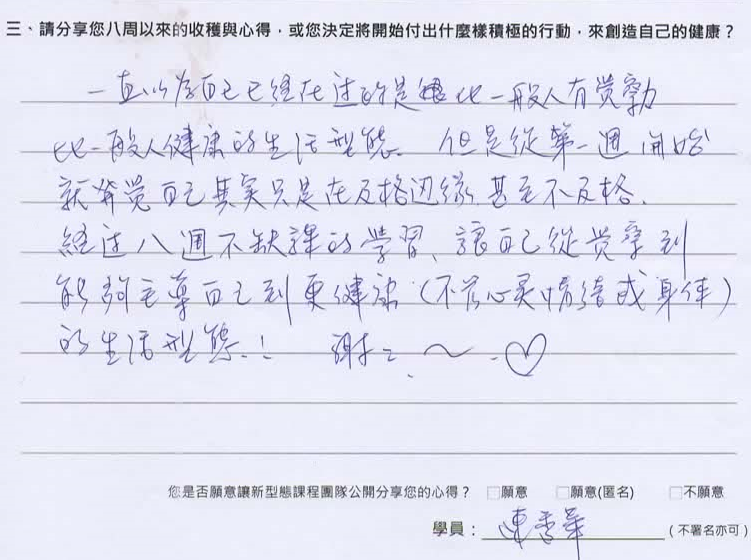 三、請分享您八周以來的收穫與心得,或您決定將開始付出什麼樣積極的行動,來創造自己的健康?
一直以為自己已經在过的是比一般人有觉察力
比一般人健康的生活型態. 但是從第一週開始
就發覺自己其实只是在及格边缘 甚至不及格.
經过八週不缺課的學習、讓自己從觉察到
能夠主導自己到更健康(不管心灵情緒或身体)
的生活型態.! 謝謝. ~ . ♡
您是否願意讓新型態課程團隊公開分享您的心得? □願意 □願意(匿名) □不願意
學員: 連香華 (不署名亦可)